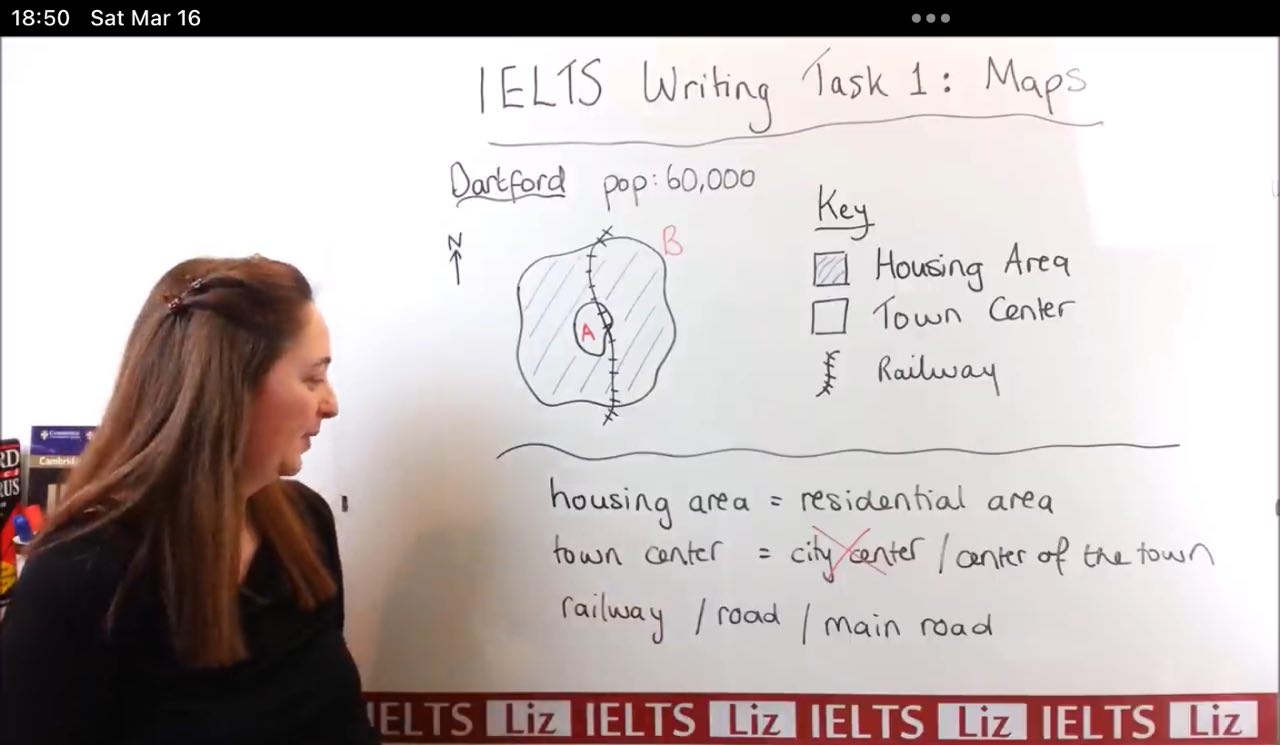 18:50 Sat Mar 16
IELTS Writing Task 1: Maps
Dartford pop: 60,000
Key
N
B
A
Housing Area
Town Center
Railway
housing area = residential area
town center = city center / center of the town
railway / road / main road
IELTS Liz IELTS Liz IELTS Liz IELTS Liz